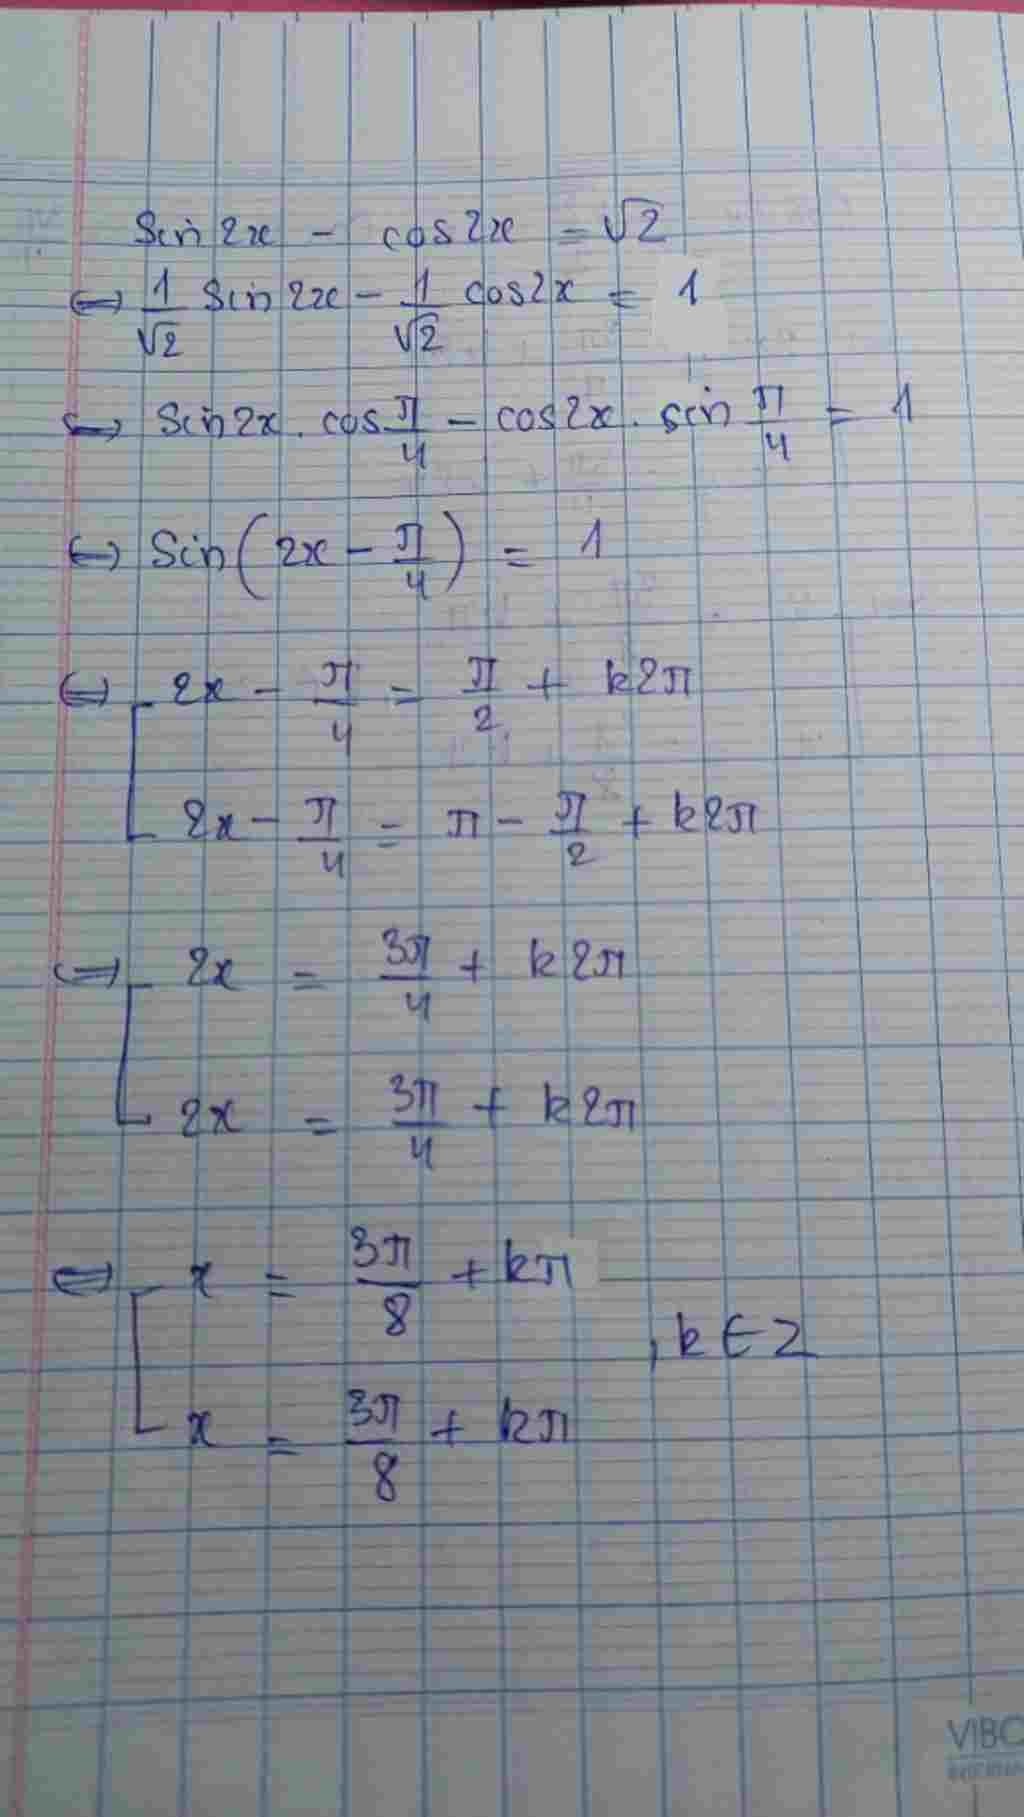 sin 2x - cos 2x = √2
⇔ 1/√2 sin 2x - 1/√2 cos 2x = 1
⇔ sin 2x . cos π/4 - cos 2x . sin π/4 = 1
⇔ sin (2x - π/4) = 1
⇔ [ 2x - π/4 = π/2 + k2π
2x - π/4 = π - π/2 + k2π
⇔ [ 2x = 3π/4 + k2π
2x = 3π/4 + k2π
⇔ [ x = 3π/8 + kπ
, k ∈ Z
x = 3π/8 + kπ